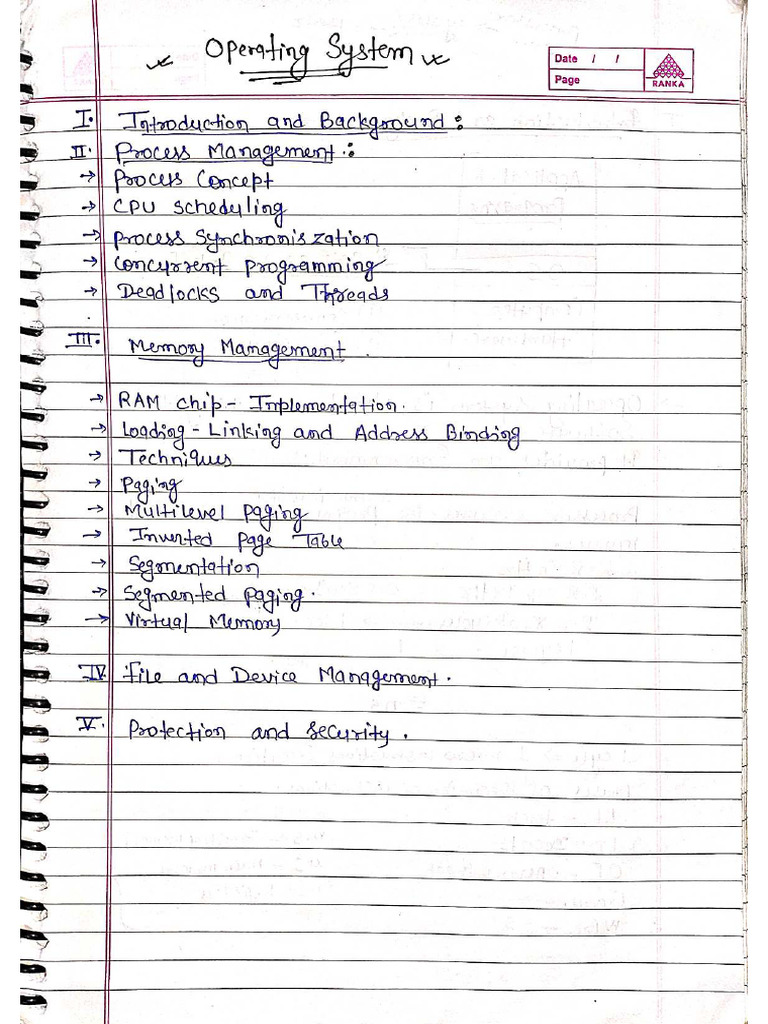 Operating System
Date / /
Page
RANKA
I. Introduction and Background :
II. Process Management :
→ Process Concept
→ CPU Scheduling
→ Process Synchroniszation
→ Concurrent programming
→ Deadlocks and Threads
III. Memory Management .
→ RAM chip - Implementation.
→ Loading - Linking and Address Binding
→ Techniques
→ Paging
→ Multilevel paging
→ Inverted page Table
→ Segmentation
→ Segmented paging.
→ Virtual Memory
IV. File and Device Management.
V. Protection and security .